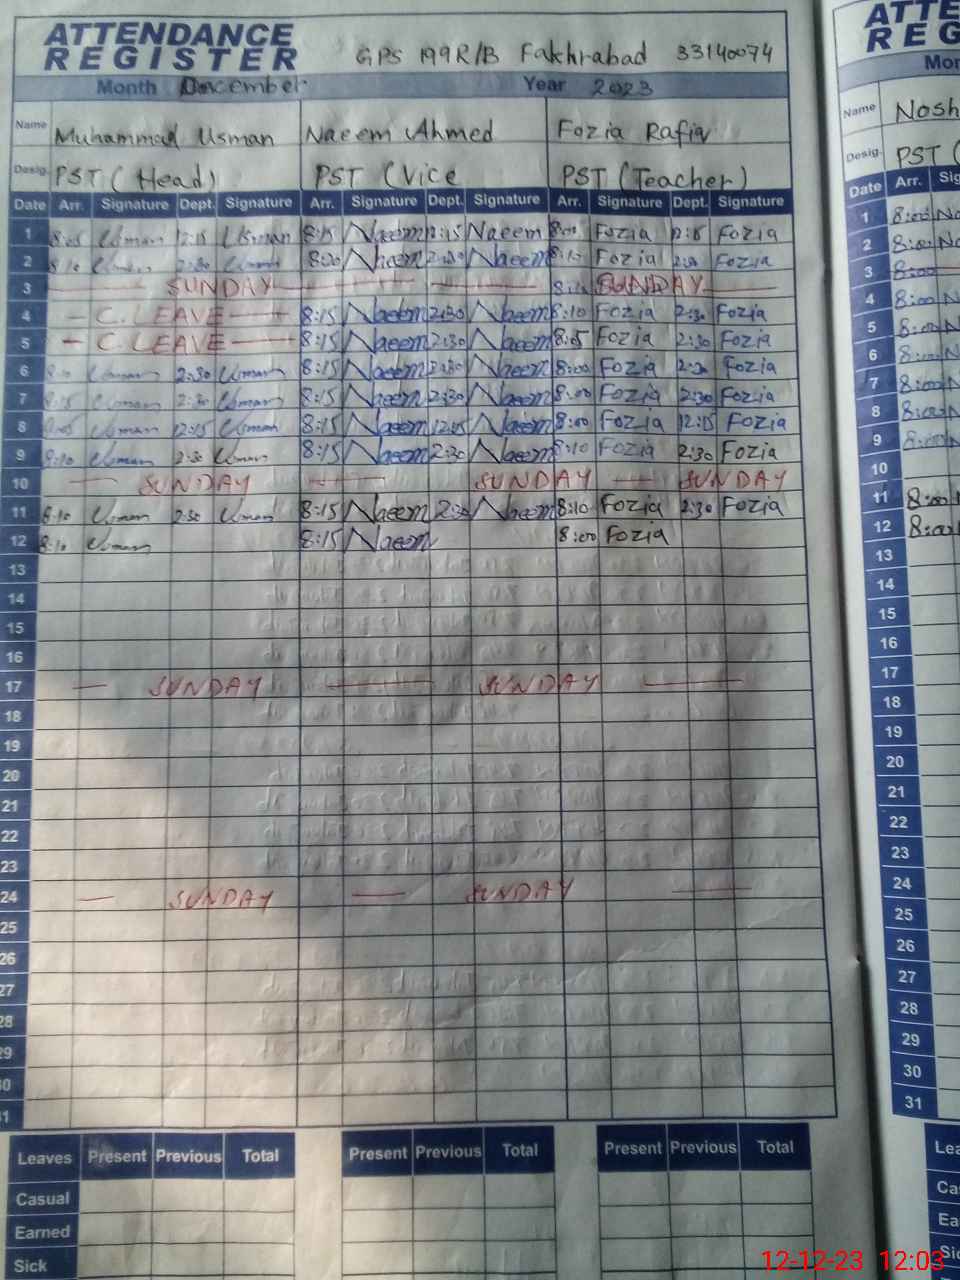 ATTENDANCE REGISTER GPS 199R/B Fakhrabad 33140074
Month December Year 2023
Name Muhammad Usman Naeem Ahmed Fozia Rafiq
Desig. PST (Head) PST (Vice PST (Teacher)
Date Arr. Signature Dept. Signature Arr. Signature Dept. Signature Arr. Signature Dept. Signature
1 8:05 Usman 12:15 Usman 8:15 Naeem 12:15 Naeem 8:00 Fozia 12:15 Fozia
2 8:10 Usman 2:30 Usman 8:20 Naeem 2:30 Naeem 8:10 Fozia 2:30 Fozia
3 SUNDAY SUNDAY
4 C. LEAVE 8:15 Naeem 2:30 Naeem 8:10 Fozia 2:30 Fozia
5 C. LEAVE 8:15 Naeem 2:30 Naeem 8:05 Fozia 2:30 Fozia
6 8:10 Usman 2:30 Usman 8:15 Naeem 2:30 Naeem 8:00 Fozia 2:30 Fozia
7 8:15 Usman 2:30 Usman 8:15 Naeem 2:30 Naeem 8:00 Fozia 2:30 Fozia
8 8:05 Usman 12:15 Usman 8:15 Naeem 12:15 Naeem 8:00 Fozia 12:15 Fozia
9 8:10 Usman 2:30 Usman 8:15 Naeem 2:30 Naeem 8:10 Fozia 2:30 Fozia
10 SUNDAY SUNDAY SUNDAY
11 8:10 Usman 2:30 Usman 8:15 Naeem 2:30 Naeem 8:10 Fozia 2:30 Fozia
12 8:10 Usman 8:15 Naeem 8:00 Fozia
13
14
15
16
17 SUNDAY SUNDAY
18
19
20
21
22
23
24 SUNDAY SUNDAY
25
26
27
28
29
30
31
Leaves Present Previous Total Present Previous Total Present Previous Total
Casual
Earned
Sick
ATTE
REG
Mon
Name Nosh
Desig. PST (
Date Arr. Sig
1 8:00 No
2 8:00 No
3 8:00
4 8:00 N
5 8:00 N
6 8:00 N
7 8:00 N
8 8:00 N
9 8:00 N
10
11 8:00
12 8:00
13
14
15
16
17
18
19
20
21
22
23
24
25
26
27
28
29
30
31
Lea
Ca
Ea
Sic
12-12-23 12:03